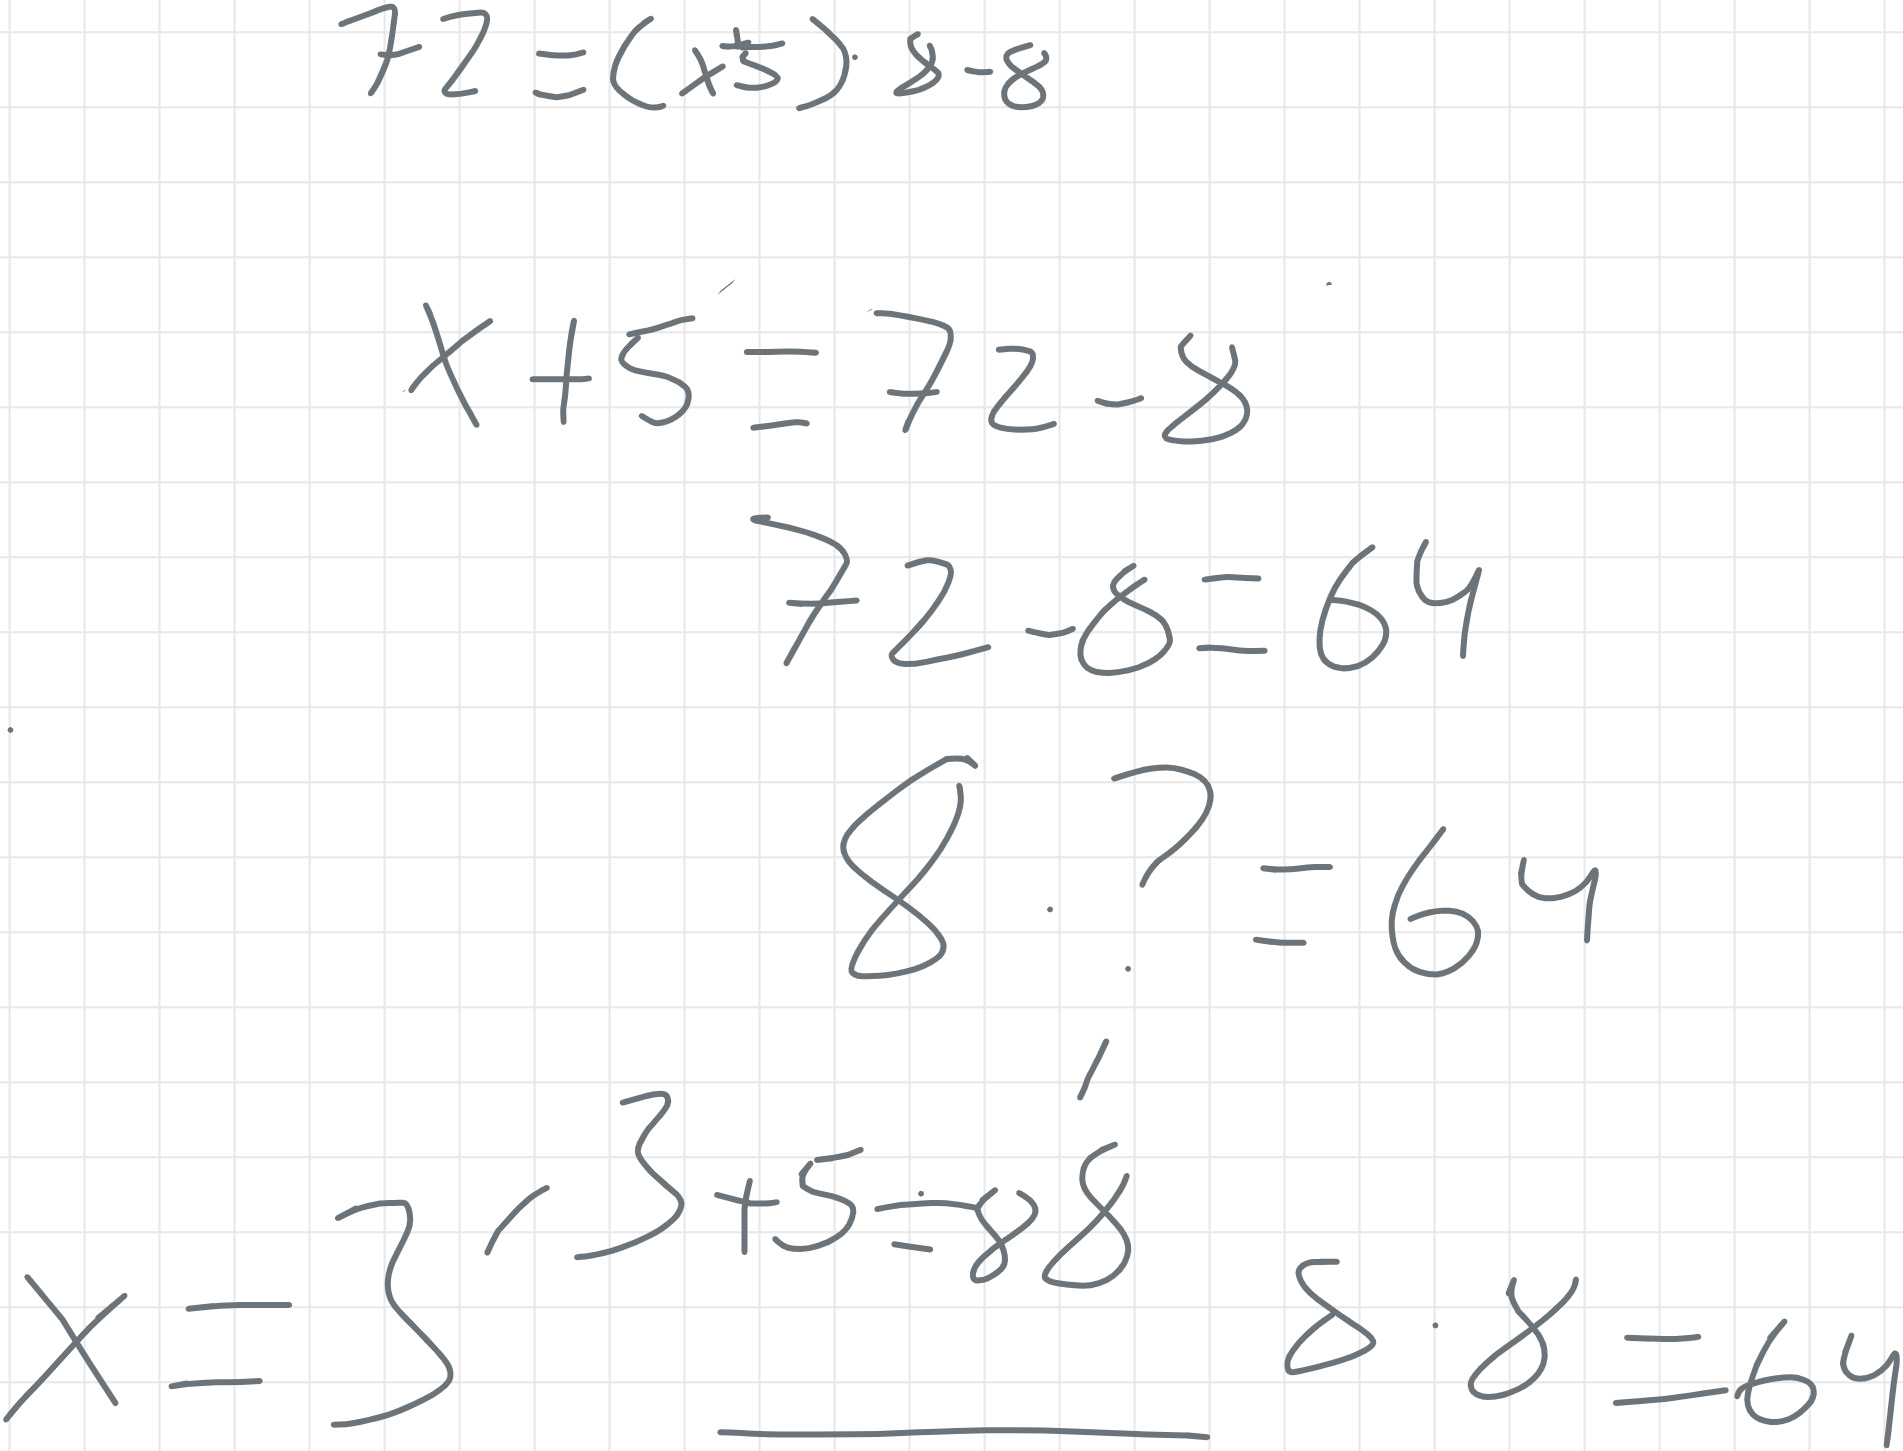 72 = (x+5) · 8 - 8
x + 5 = 72 - 8
72 - 8 = 64
8 · ? = 64
x = 3, 3 + 5 = 8 8 8 · 8 = 64